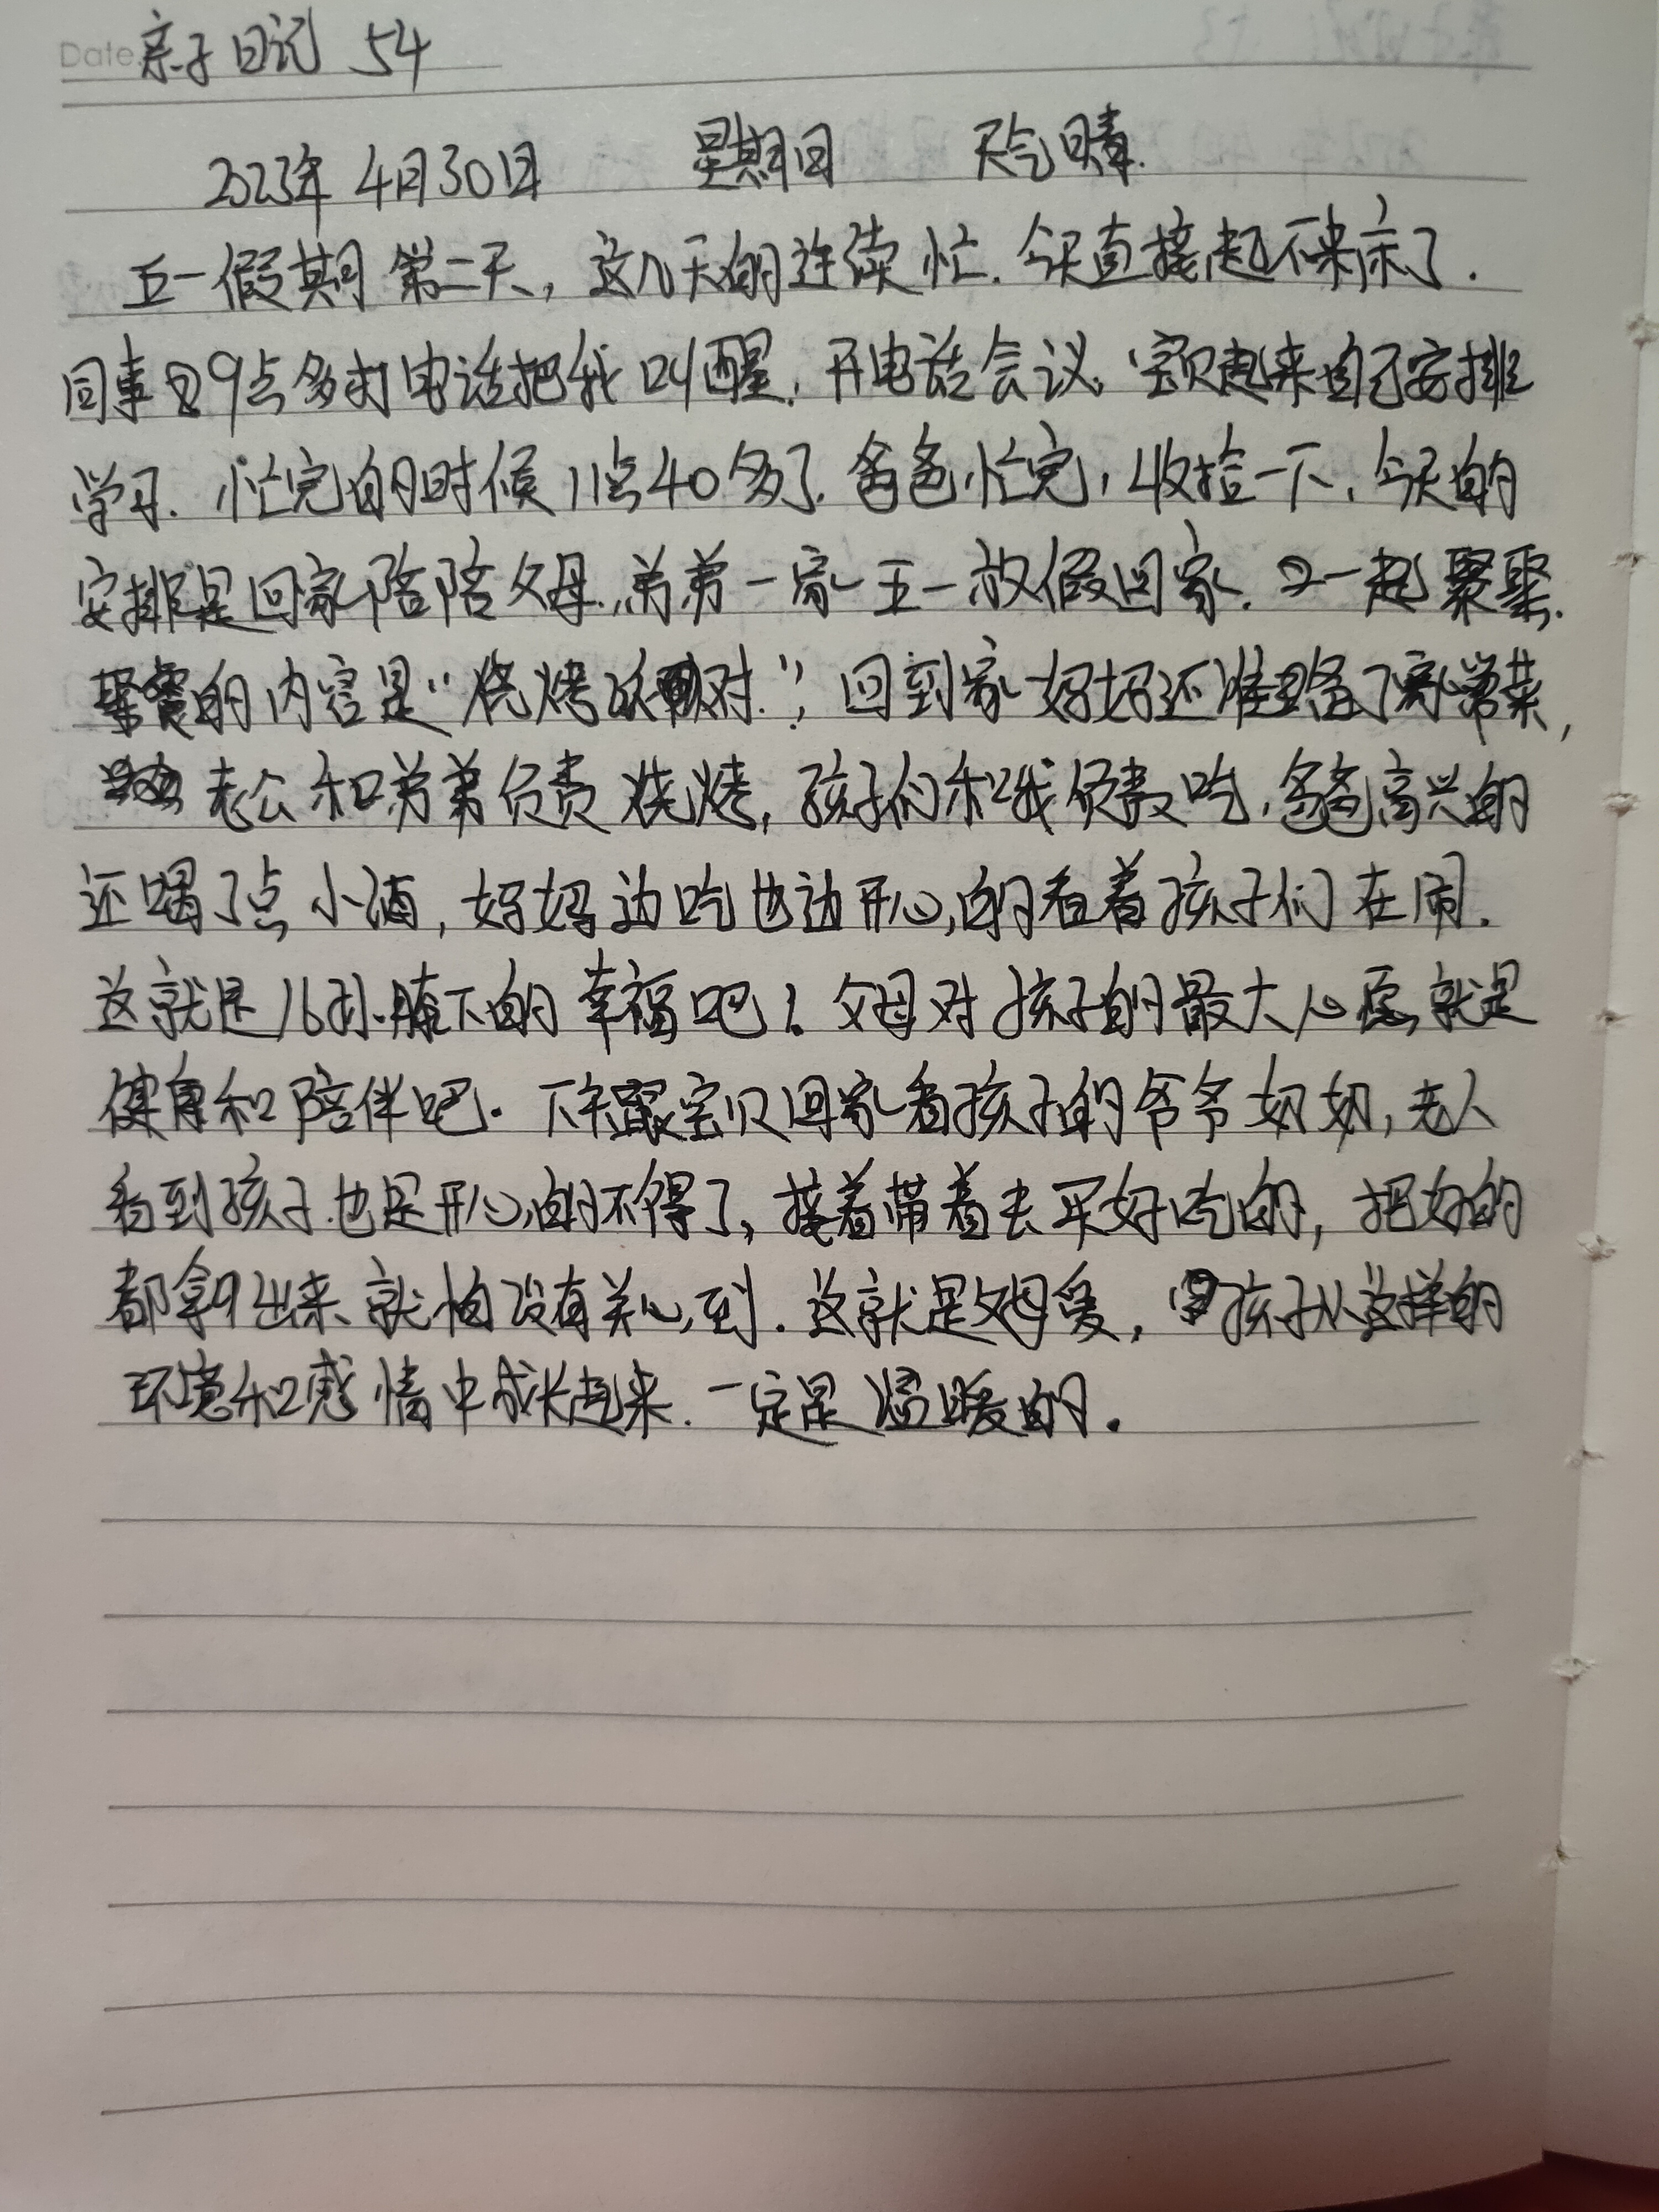 Date 亲子日记 54
2023年4月30日 星期日 天气晴.
五一假期第二天,这几天的连续忙.今天直接起不来床了.
同事9点多打电话把我叫醒.开电话会议.宝贝起来自己安排
学习.忙完的时候11点40多了.爸爸忙完,收捡一下,今天的
安排是回家陪陪父母.弟弟一家五一放假回家.又一起聚聚.
聚餐的内容是“烧烤派对.”,回到家妈妈还准备了家常菜,
老公和弟弟负责烧烤,孩子们和我负责吃,爸爸高兴的
还喝了点小酒,妈妈边吃也边开心的看着孩子们在闹.
这就是儿孙膝下的幸福吧!父母对孩子的最大心愿就是
健康和陪伴吧.下午跟宝贝回家看孩子的爷爷奶奶,老人
看到孩子也是开心的不得了,接着带着去买好吃的,把好的
都拿出来就怕没有关心到.这就是父母爱,孩子从这样的
环境和感情中成长起来.一定是温暖的.